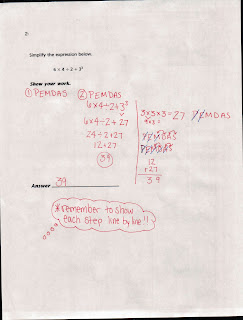 2.
Simplify the expression below.
6 × 4 ÷ 2 + 3³
Show your work.
① PEMDAS ② PEMDAS
6×4÷2+3³
6×4÷2+27
24÷2+27
12+27
39
3×3×3=27 PEMDAS
9×3=
PEMDAS
PEMDAS
12
+27
39
Answer 39
*remember to show
each step line by line!!